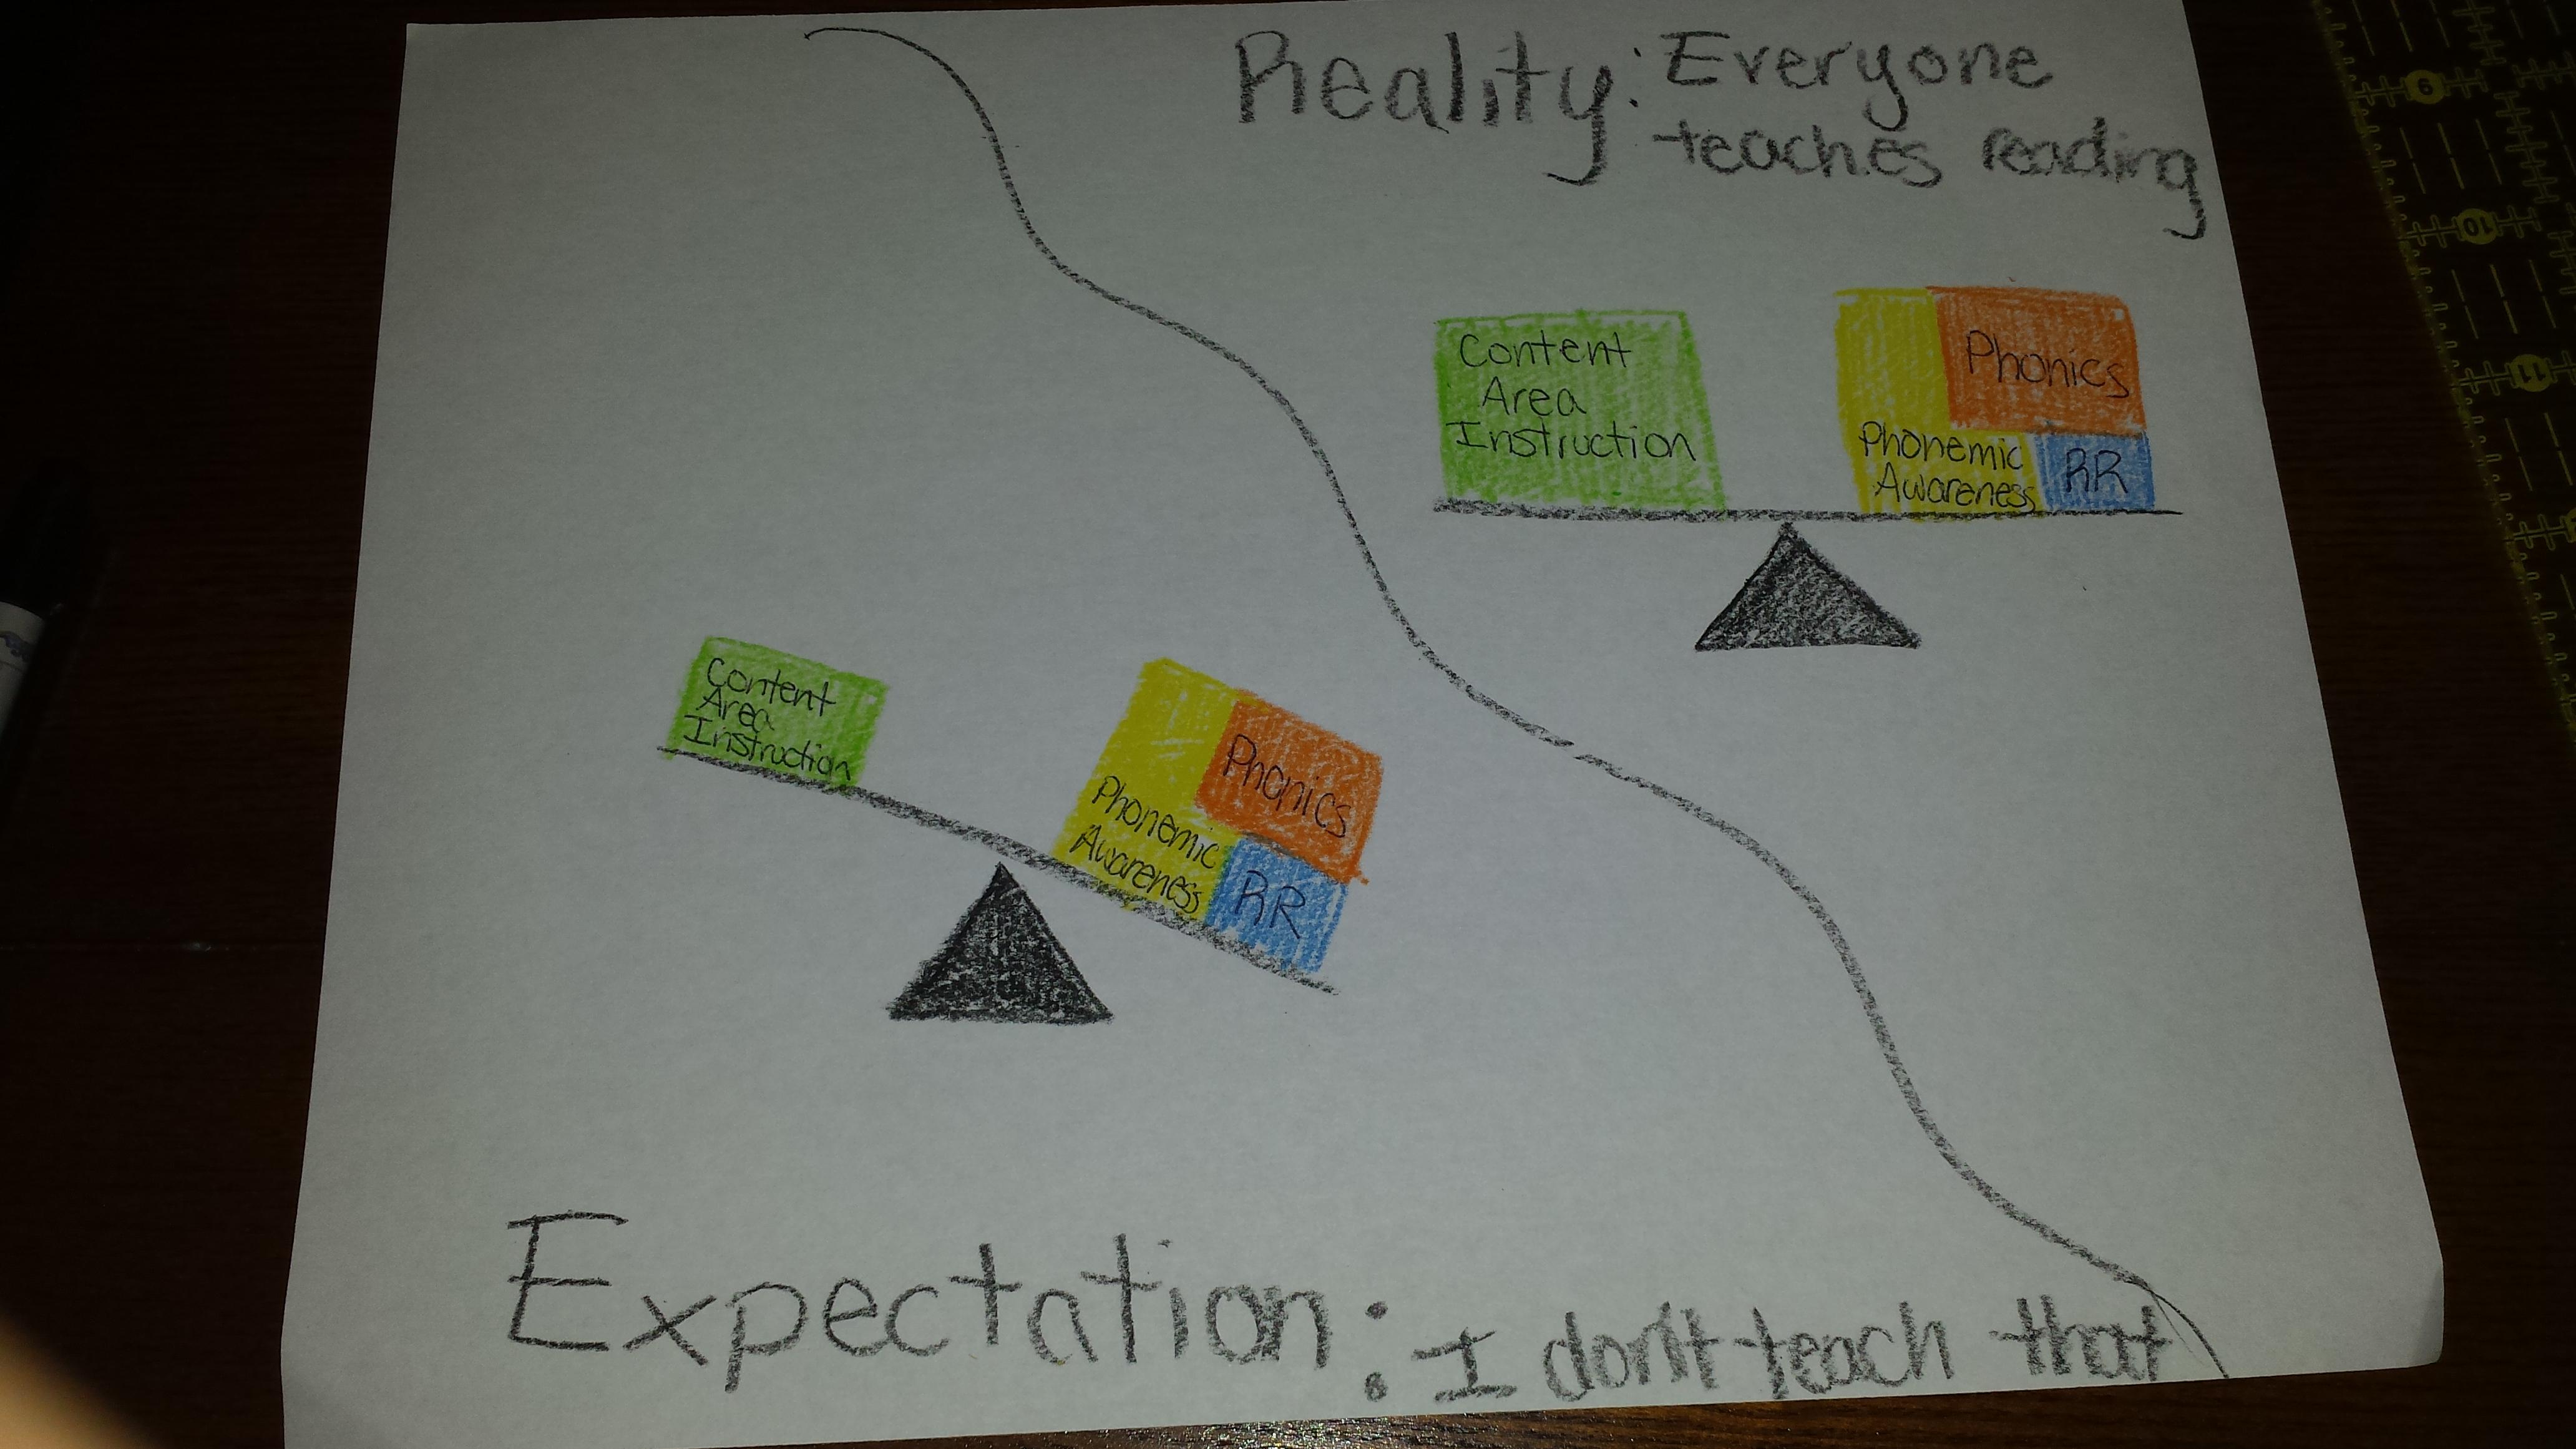 Reality: Everyone
teaches reading
Content
Area
Instruction
Phonics
Phonemic
Awareness
RR
Content
Area
Instruction
Phonics
Phonemic
Awareness
RR
Expectation: I don't teach that
9
10
11